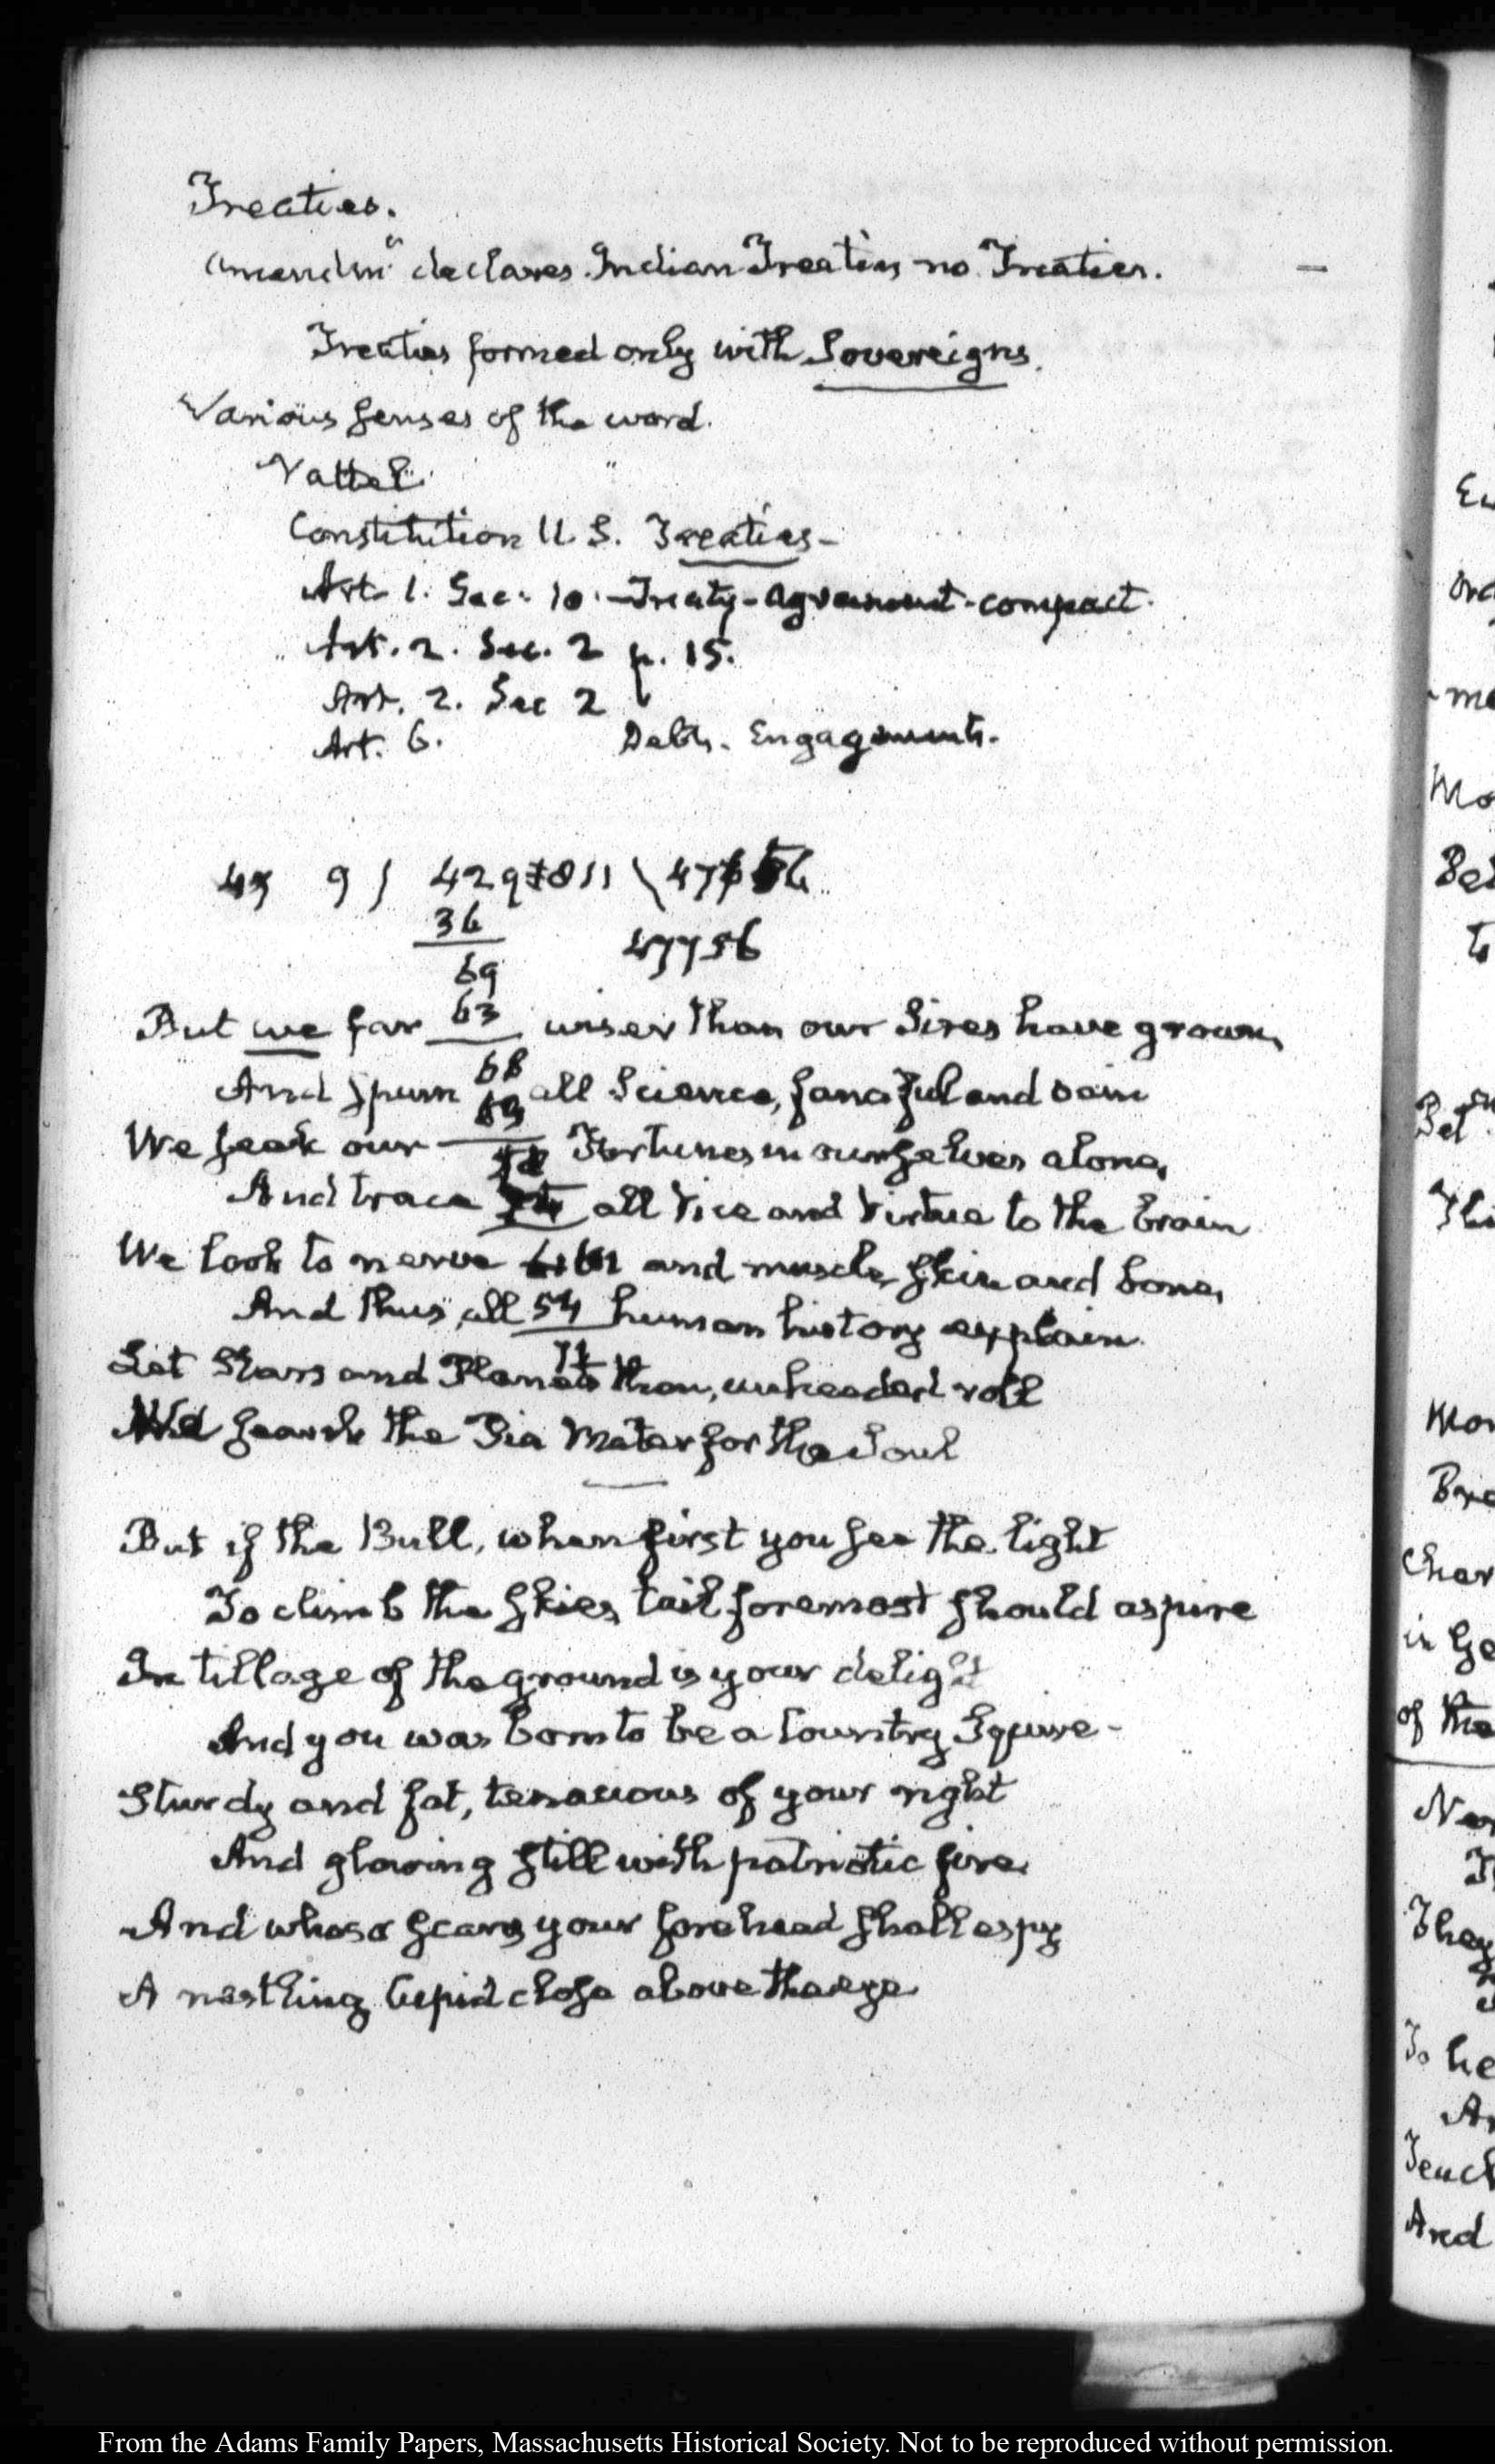 Treaties.
Amendmt declares Indian Treaties no Treaties. —
Treaties formed only with Sovereigns.
Various senses of the word.
Vattel
Constitution U.S. Treaties—
Art. 1. Sec. 10. — Treaty — Agreement — compact.
Art. 2. Sec. 2 p. 15.
Art. 2. Sec 2
Art. 6. Debts. Engagements.
9) 4297811 \
36 47756
69
But we far 63 wiser than our Sires have grown,
68
And spurn 63 all Science, fanciful and vain
We seek our Fortunes in ourselves alone,
And trace all Vice and Virtue to the brain
We look to nerve and muscle, skin and bone,
And thus, all 54 human history explain.
Let Stars and Planets then, unheeded roll
We search the Pia Mater for the Soul
But if the Bull, when first you see the light
To climb the skies, tail foremost should aspire
In tillage of the ground is your delight
And you was born to be a Country Squire—
Sturdy and fat, tenacious of your right
And glowing still with patriotic fire
And whoso scans your forehead shall espy
A nestling Cupid close above the eye
From the Adams Family Papers, Massachusetts Historical Society. Not to be reproduced without permission.